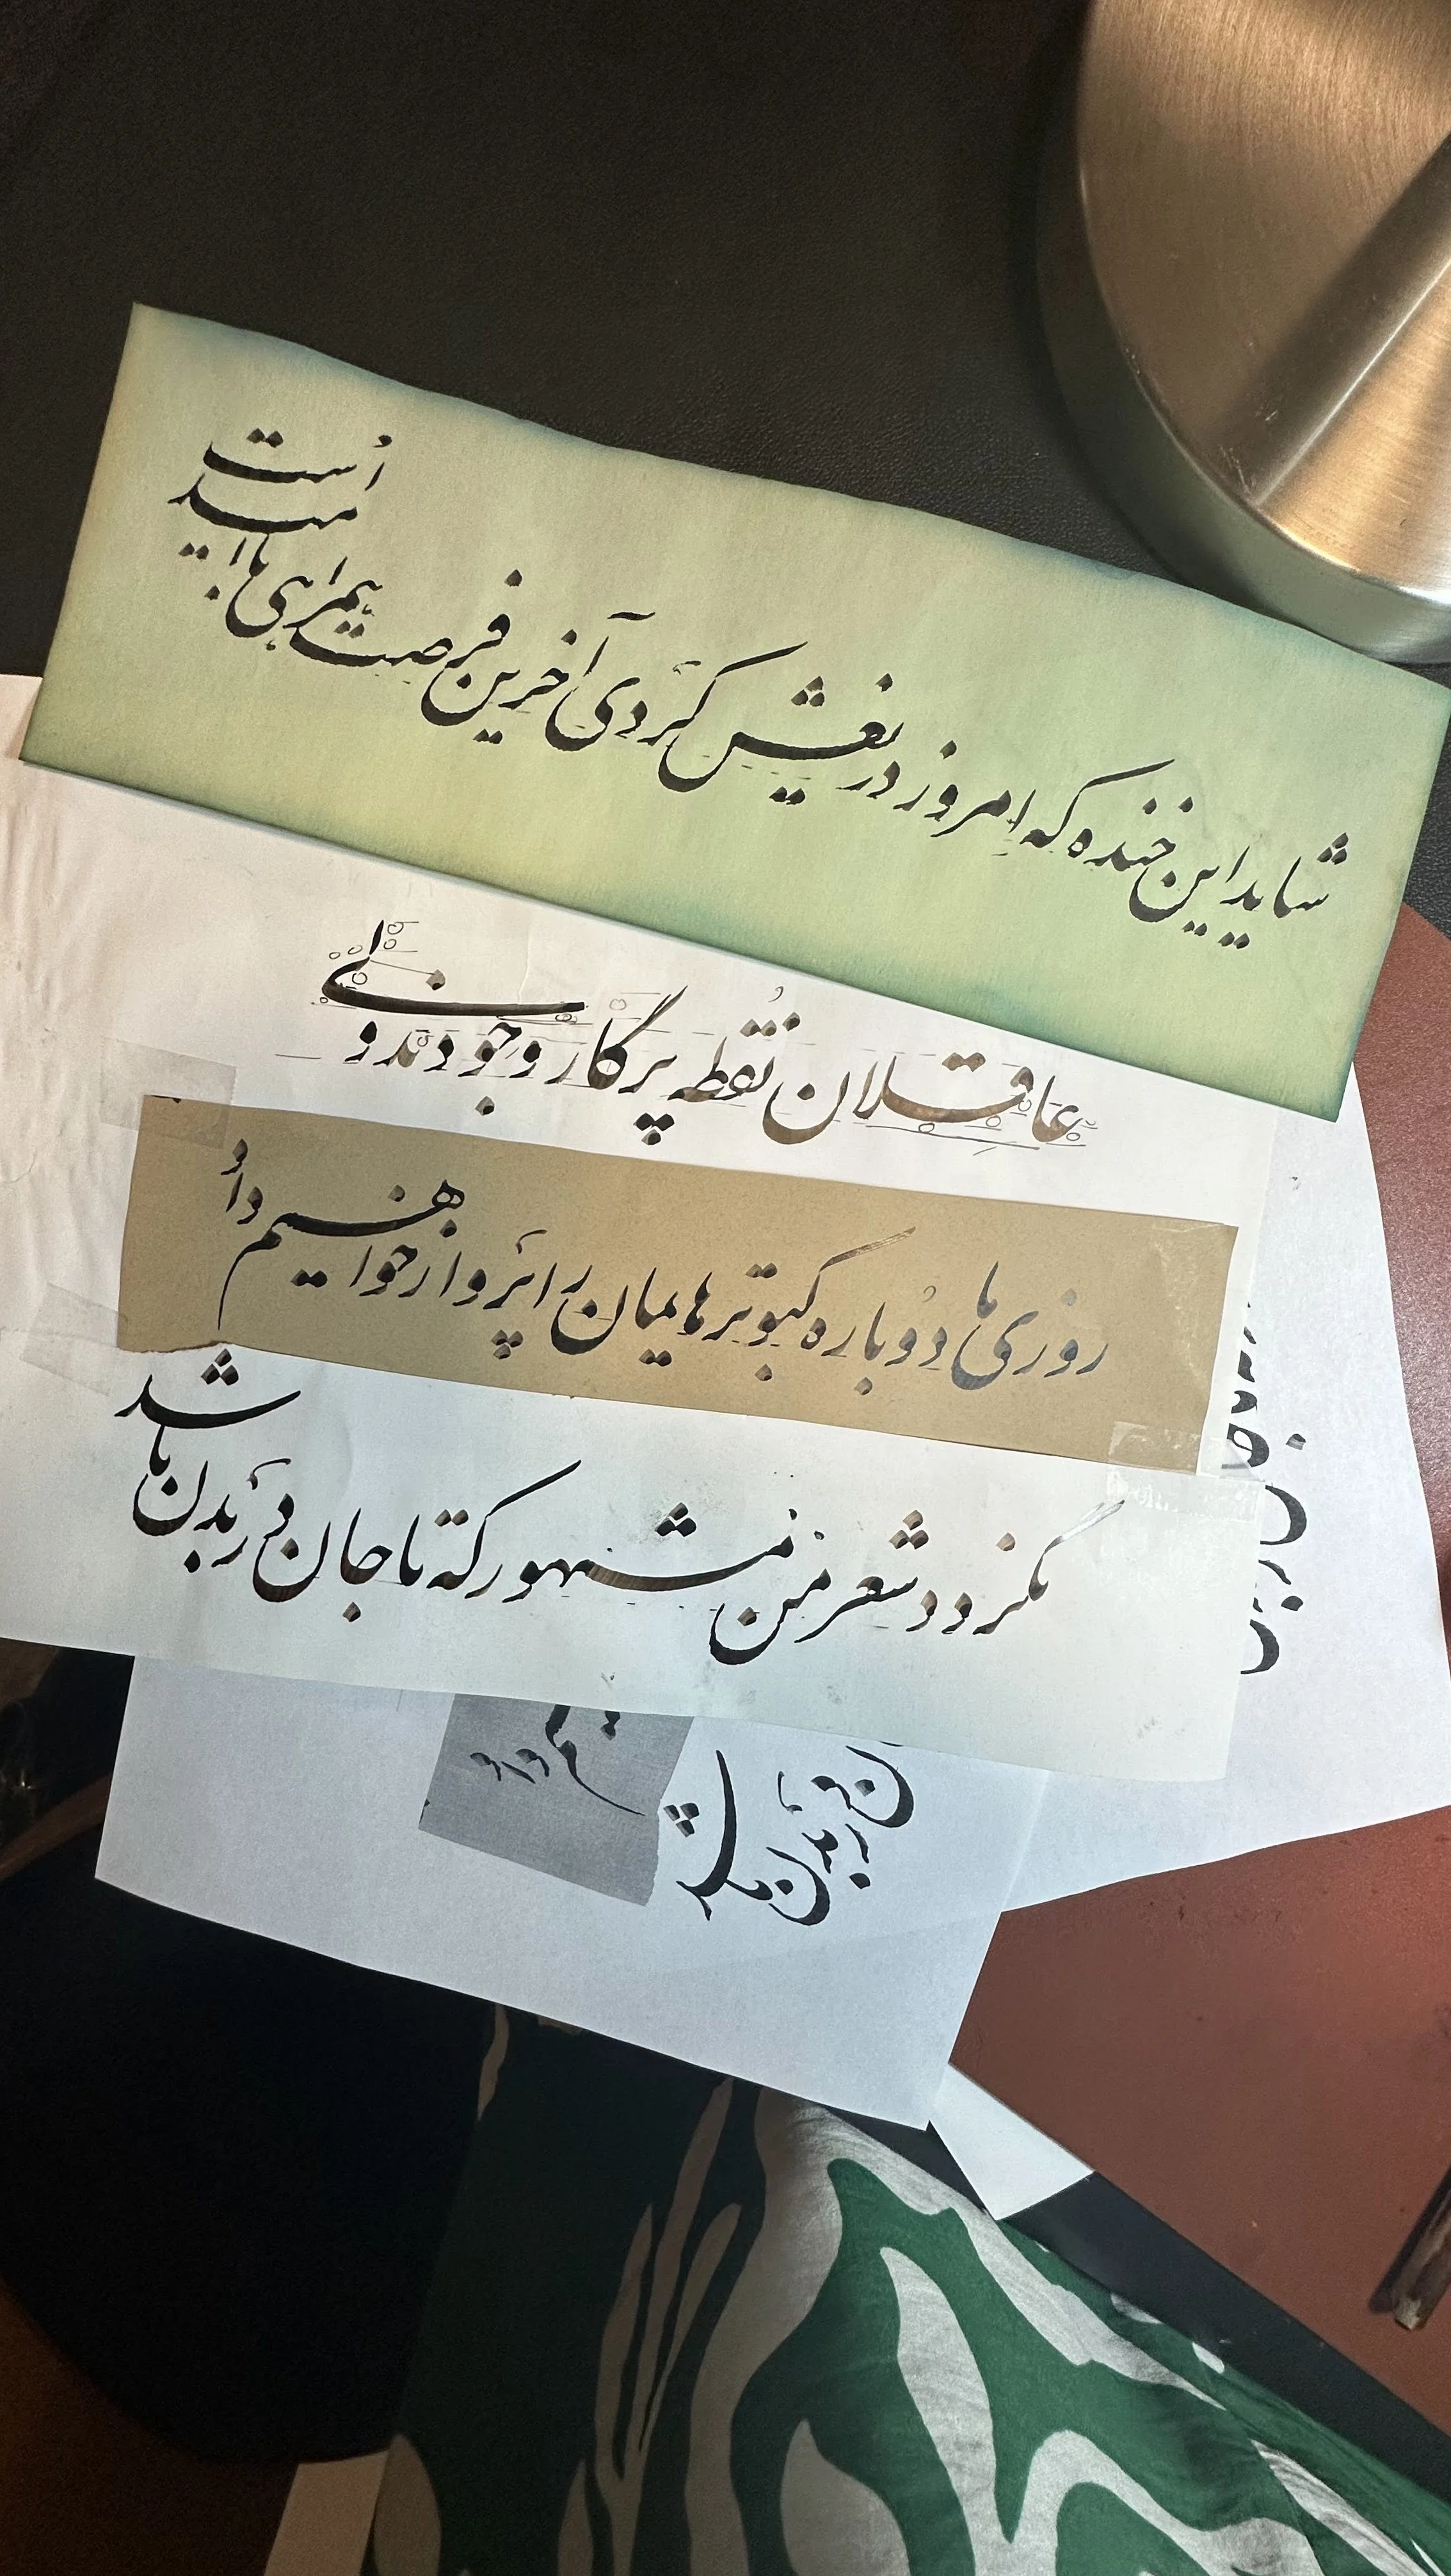 شاید این خنده که امروز دریغش کردی آخرین فرصت همراهی با امید است
عاقلان نقطه پرگار وجودند ولی
روزی ما دوباره کبوترهایمان را پرواز خواهیم داد
نگردد شعر من مشهور که تا جان در بدن باشد
در بدن باشد